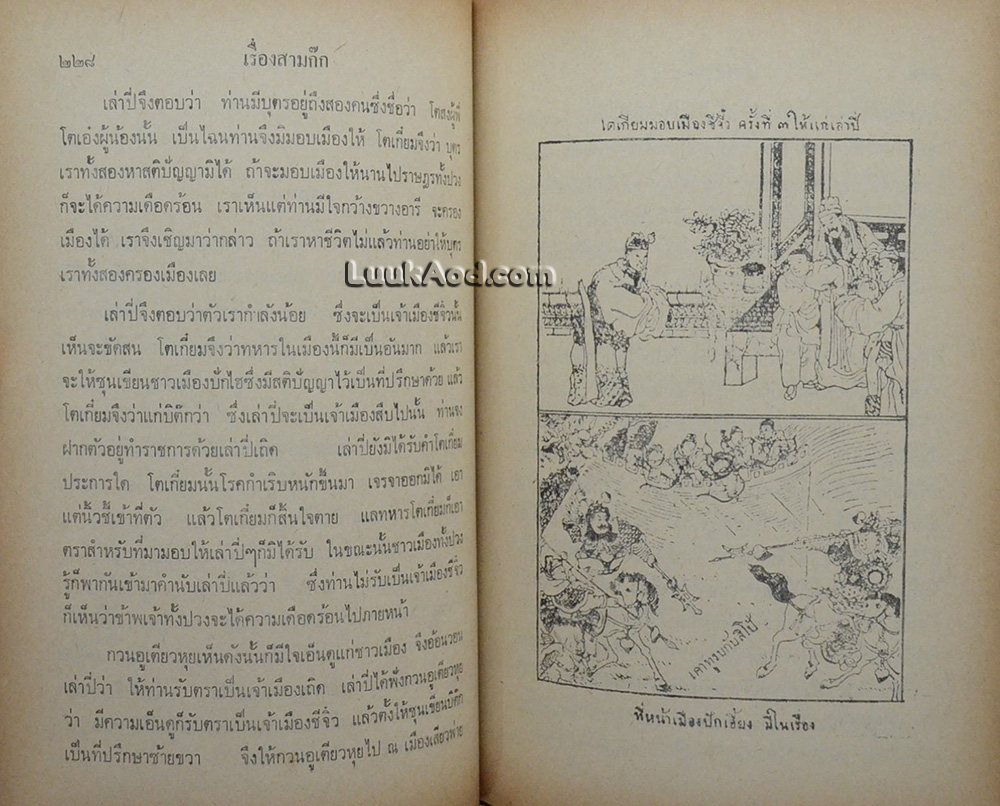 ๒๒๘ เรื่องสามก๊ก
เล่าปี่จึงตอบว่า ท่านมีบุตรอยู่ถึงสองคนซึ่งชื่อว่า โตสงผู้พี่
โตเอ๋งผู้น้องนั้น เป็นไฉนท่านจึงมิมอบเมืองให้ โตเกี๋ยมจึงว่า บุตร
เราทั้งสองหาสติปัญญามิได้ ถ้าจะมอบเมืองให้นานไปราษฎรทั้งปวง
ก็จะได้ความเดือดร้อน เราเห็นแต่ท่านมีใจกว้างขวางอารี จะครอง
เมืองได้ เราจึงเชิญมาว่ากล่าว ถ้าเราหาชีวิตไม่แล้วท่านอย่าให้บุตร
เราทั้งสองครองเมืองเลย
LuukAod.com
เล่าปี่จึงตอบว่าตัวเรากำลังน้อย ซึ่งจะเป็นเจ้าเมืองชีจิ๋วนั้น
เห็นจะขัดสน โตเกี๋ยมจึงว่าทหารในเมืองนี้ก็มีเป็นอันมาก แล้วเรา
จะให้ซุนเขียนชาวเมืองปักไฮซึ่งมีสติปัญญาไว้เป็นที่ปรึกษาด้วย แล้ว
โตเกี๋ยมจึงว่าแก่บิต๊กว่า ซึ่งเล่าปี่จะเป็นเจ้าเมืองสืบไปนั้น ท่านจง
ฝากตัวอยู่ทำราชการด้วยเล่าปี่เถิด เล่าปี่ยังมิได้รับคำโตเกี๋ยม
ประการใด โตเกี๋ยมนั้นโรคกำเริบหนักขึ้นมา เจรจาออกมิได้ เอา
แต่นิ้วชี้เข้าที่ตัว แล้วโตเกี๋ยมก็สิ้นใจตาย แลทหารโตเกี๋ยมก็เอา
ตราสำหรับที่มามอบให้เล่าปี่ๆก็มิได้รับ ในขณะนั้นชาวเมืองทั้งปวง
รู้ก็พากันเข้ามาคำนับเล่าปี่แล้วว่า ซึ่งท่านไม่รับเป็นเจ้าเมืองชีจิ๋ว
ก็เห็นว่าข้าพเจ้าทั้งปวงจะได้ความเดือดร้อนไปภายหน้า
กวนอูเตียวหุยเห็นดังนั้นก็มีใจเอ็นดูแก่ชาวเมือง จึงอ้อนวอน
เล่าปี่ว่า ให้ท่านรับตราเป็นเจ้าเมืองเถิด เล่าปี่ได้ฟังกวนอูเตียวหุย
ว่า มีความเอ็นดูก็รับตราเป็นเจ้าเมืองชีจิ๋ว แล้วตั้งให้ซุนเขียนบิต๊ก
เป็นที่ปรึกษาซ้ายขวา จึงให้กวนอูเตียวหุยไป ณ เมืองเสียวพ่าย
โตเกี๋ยมมอบเมืองชีจิ๋ว ครั้งที่ ๓ ให้แก่เล่าปี่
เคาทูรบกับลิโป้
ที่หน้าเมืองปักเอี้ยง มีในเรื่อง